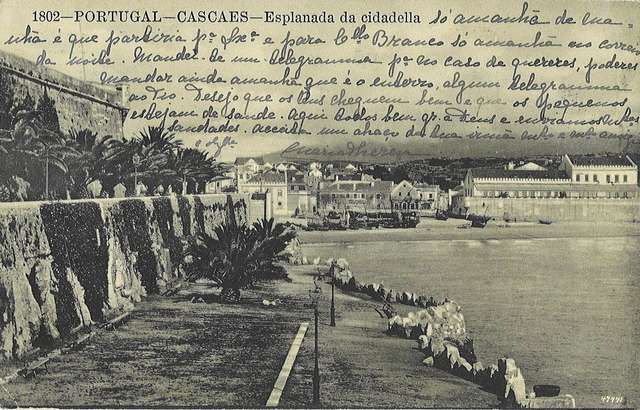 1802—PORTUGAL—CASCAES—Esplanada da cidadella
só amanhã de ma-
nhã é que partiria pª Lxª e para Cllo Branco só amanhã no correio
da noite. Mandei-te um telegramma pª no caso de quereres, poderes
mandar ainda amanhã que é o enterro, algum telegramma
ao Tio. Desejo que os teus cheguem bem e que os pequenos
estejam de saude. Aqui todos bem gr. a Deus e enviamos-lhes
saudades. Aceita um abraço da tua irmã mto e mto amiga
47771